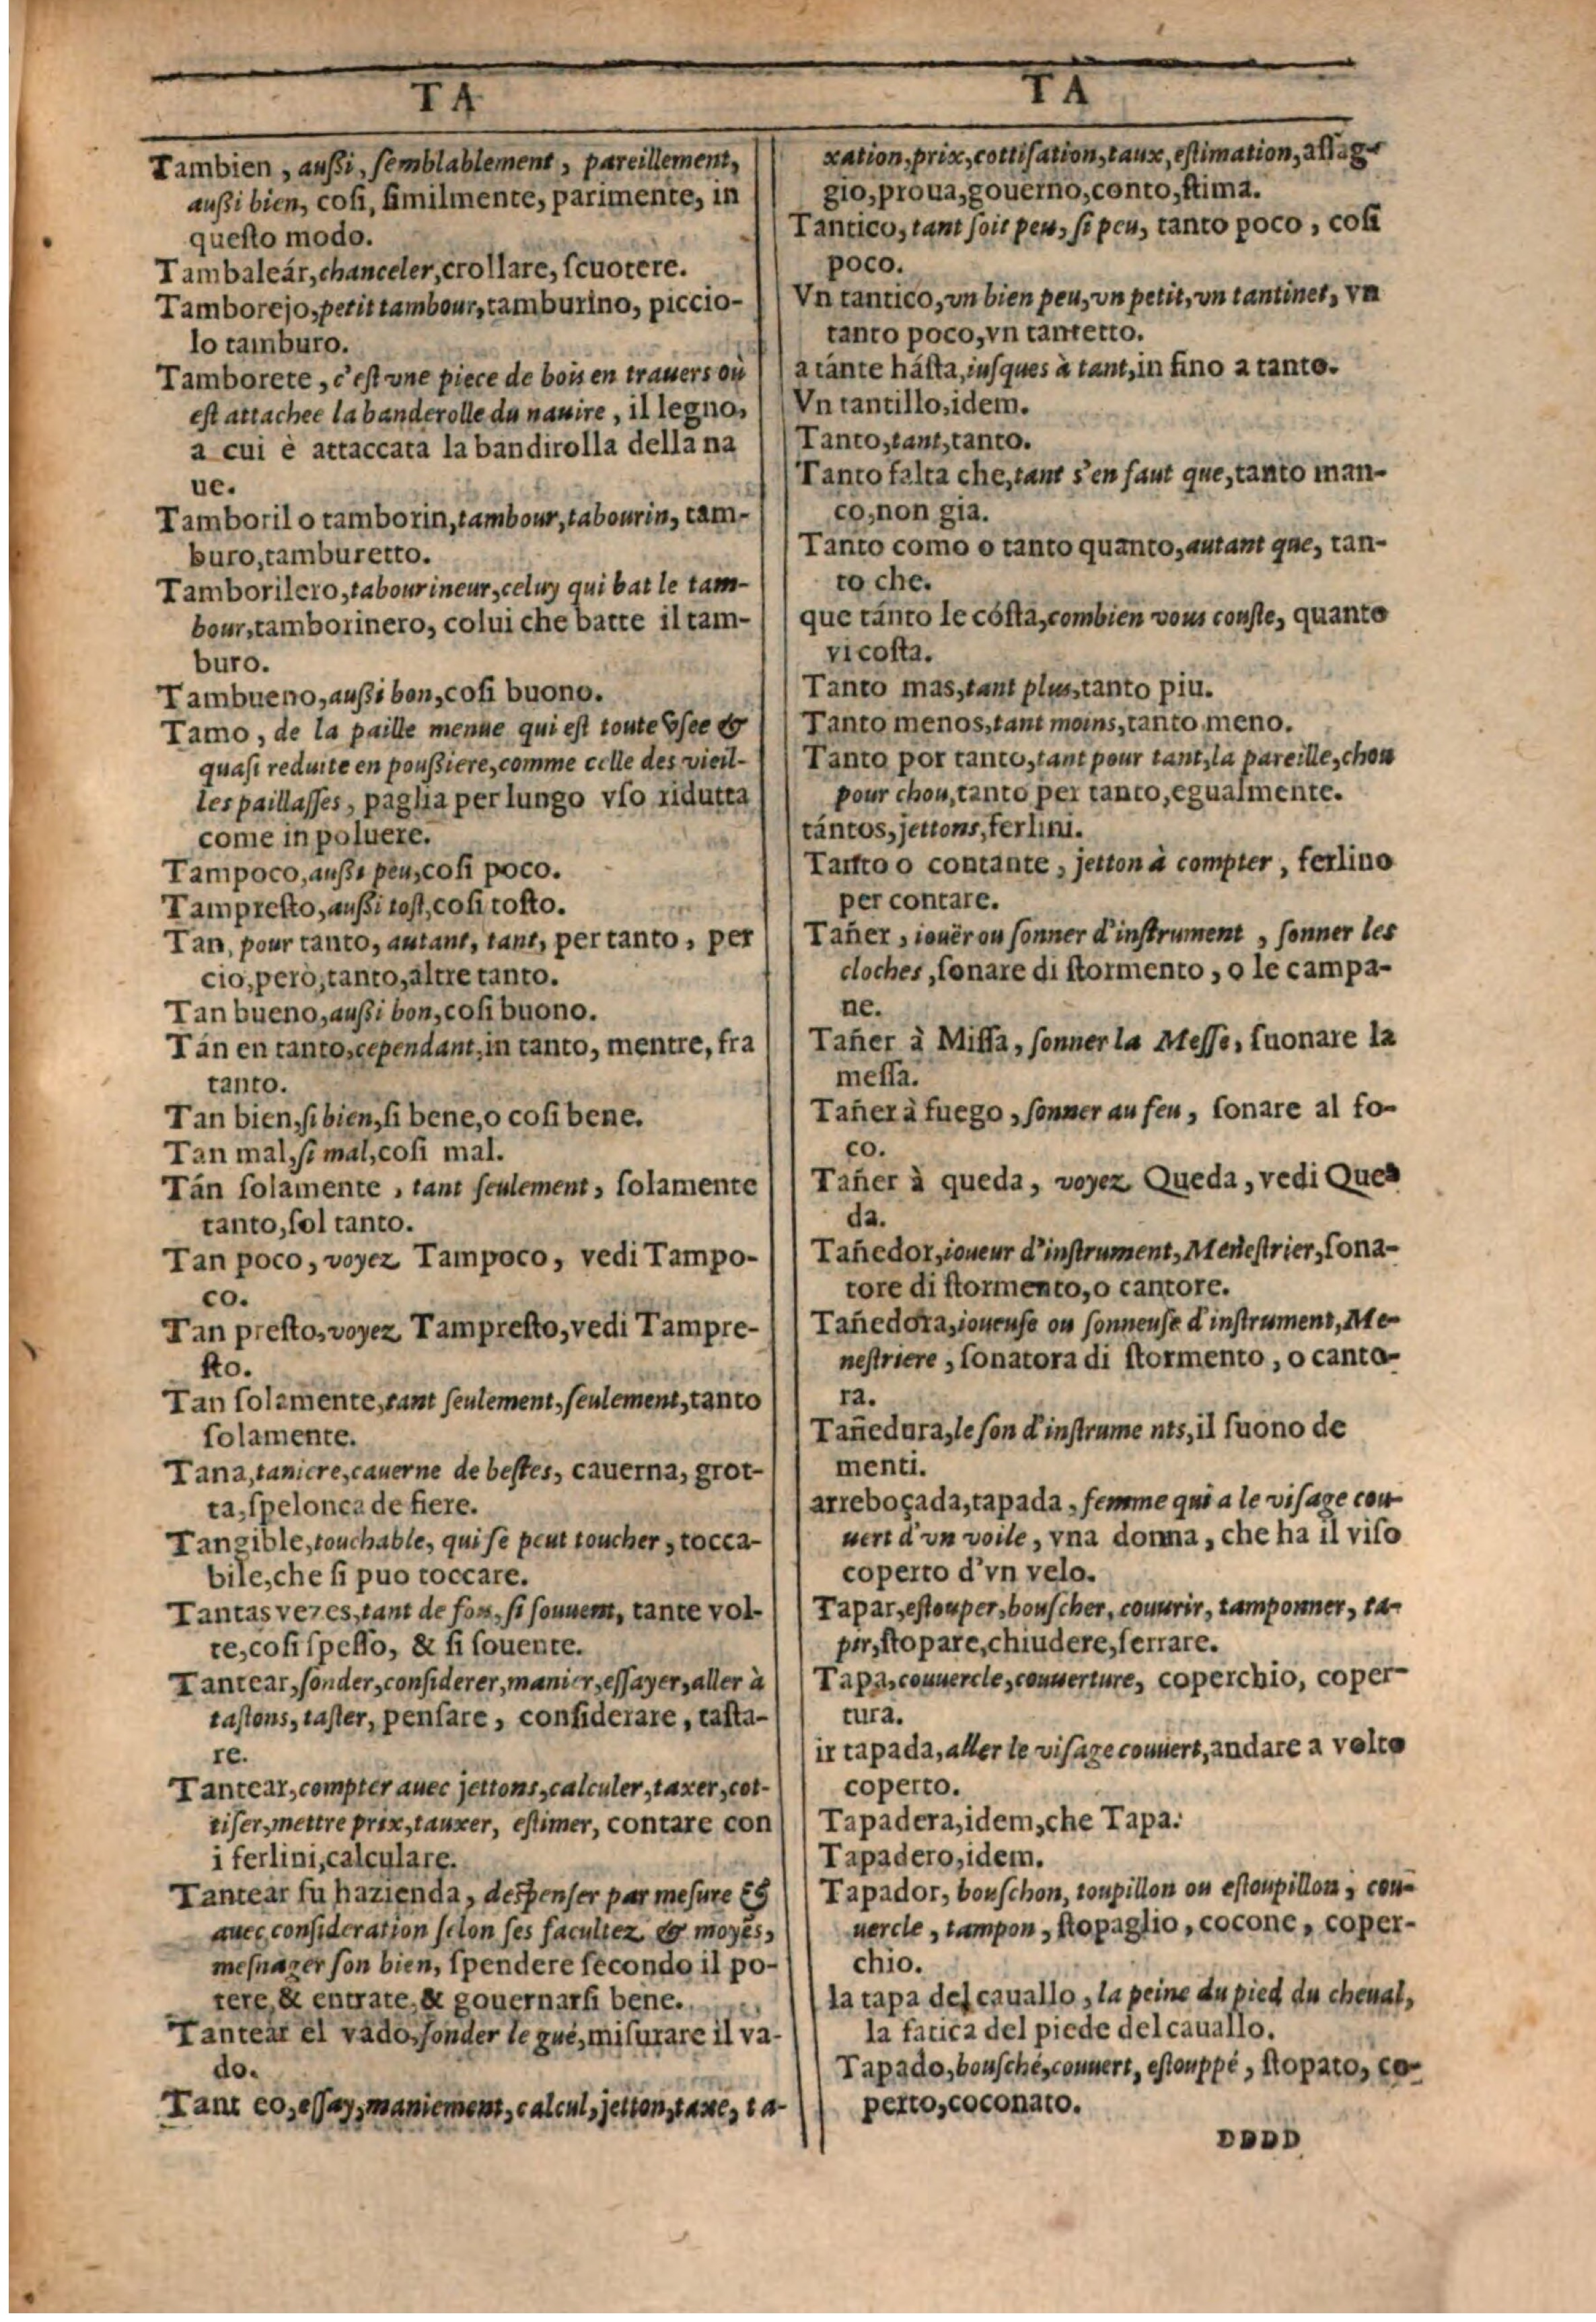 TA
Tambien, außi, ſemblablement, pareillement,
außi bien, coſi, ſimilmente, parimente, in
queſto modo.
Tambaleár, chanceler, crollare, ſcuotere.
Tamborejo, petit tambour, tamburino, piccio-
lo tamburo.
Tamborete, c'eſt vne piece de bois en trauers où
eſt attachee la banderolle du nauire, il legno,
a cui è attaccata la bandirolla della na
ue.
Tamboril o tamborin, tambour, tabourin, tam-
buro, tamburetto.
Tamborilero, tabourineur, celuy qui bat le tam-
bour, tamborinero, colui che batte il tam-
buro.
Tambueno, außi bon, coſi buono.
Tamo, de la paille menue qui est toute vſee &
quaſi reduite en poußiere, comme celle des vieil-
les paillaſſes, paglia per lungo vſo ridutta
come in poluere.
Tampoco, außi peu, coſi poco.
Tampreſto, außi toſt, coſi toſto.
Tan, pour tanto, autant, tant, per tanto, per
cio, però, tanto, altre tanto.
Tan bueno, außi bon, coſi buono.
Tán en tanto, cependant, in tanto, mentre, fra
tanto.
Tan bien, ſi bien, ſi bene, o coſi bene.
Tan mal, ſi mal, coſi mal.
Tán ſolamente, tant ſeulement, ſolamente
tanto, ſol tanto.
Tan poco, voyez Tampoco, vedi Tampo-
co.
Tan preſto, voyez Tampreſto, vedi Tampre-
ſto.
Tan ſolamente, tant ſeulement, ſeulement, tanto
ſolamente.
Tana, taniere, cauerne de beſtes, cauerna, grot-
ta, ſpelonca de fiere.
Tangible, touchable, qui ſe peut toucher, tocca-
bile, che ſi puo toccare.
Tantas vezes, tant de fois, ſi ſouuent, tante vol-
te, coſi ſpeſſo, & ſi ſouente.
Tantear, ſonder, conſiderer, manier, eſſayer, aller à
taſtons, taſter, penſare, conſiderare, taſta-
re.
Tantear, compter auec jettons, calculer, taxer, cot-
tiſer, mettre prix, tauxer, eſtimer, contare con
i ferlini, calculare.
Tantear ſu hazienda, deſpenſer par meſure &
auec conſideration ſelon ſes facultez & moyẽs,
meſnager ſon bien, ſpendere ſecondo il po-
tere, & entrate, & gouernarſi bene.
Tantear el vado, ſonder le gué, miſurare il va-
do.
Tant eo, eſſay, maniement, calcul, jetton, taxe, ta-
TA
xation, prix, cottiſation, taux, eſtimation, aſſag-
gio, proua, gouerno, conto, ſtima.
Tantico, tant ſoit peu, ſi peu, tanto poco, coſi
poco.
Vn tantico, vn bien peu, vn petit, vn tantinet, vn
tanto poco, vn tantetto.
a tánte háſta, iuſques à tant, in fino a tanto.
Vn tantillo, idem.
Tanto, tant, tanto.
Tanto falta che, tant s'en faut que, tanto man-
co, non gia.
Tanto como o tanto quanto, autant que, tan-
to che.
que tánto le cóſta, combien vous couſte, quanto
vi coſta.
Tanto mas, tant plus, tanto piu.
Tanto menos, tant moins, tanto meno.
Tanto por tanto, tant pour tant, la pareille, chou
pour chou, tanto per tanto, egualmente.
tántos, jettons, ferlini.
Tanto o contante, jetton à compter, ferlino
per contare.
Tañer, iouër ou ſonner d'inſtrument, ſonner les
cloches, ſonare di ſtormento, o le campa-
ne.
Tañer à Miſſa, ſonner la Meſſe, ſuonare la
meſſa.
Tañer à fuego, ſonner au feu, ſonare al fo-
co.
Tañer à queda, voyez Queda, vedi Que-
da.
Tañedor, ioueur d'inſtrument, Meneſtrier, ſona-
tore di ſtormento, o cantore.
Tañedora, ioueuſe ou ſonneuſe d'inſtrument, Me-
neſtriere, ſonatora di ſtormento, o canto-
ra.
Tañedura, le ſon d'inſtrume nts, il ſuono de
menti.
arreboçada, tapada, femme qui a le viſage cou-
uert d'vn voile, vna donna, che ha il viſo
coperto d'vn velo.
Tapar, eſtouper, bouſcher, couurir, tamponner, ta-
pir, ſtopare, chiudere, ſerrare.
Tapa, couuercle, couuerture, coperchio, coper-
tura.
ir tapada, aller le viſage couuert, andare a volto
coperto.
Tapadera, idem, che Tapa.
Tapadero, idem.
Tapador, bouſchon, toupillon ou eſtoupillon, cou-
uercle, tampon, ſtopaglio, cocone, coper-
chio.
la tapa del cauallo, la peine du pied du cheual,
la fatica del piede del cauallo.
Tapado, bouſché, couuert, eſtouppé, ſtopato, co-
perto, coconato.
DDDD